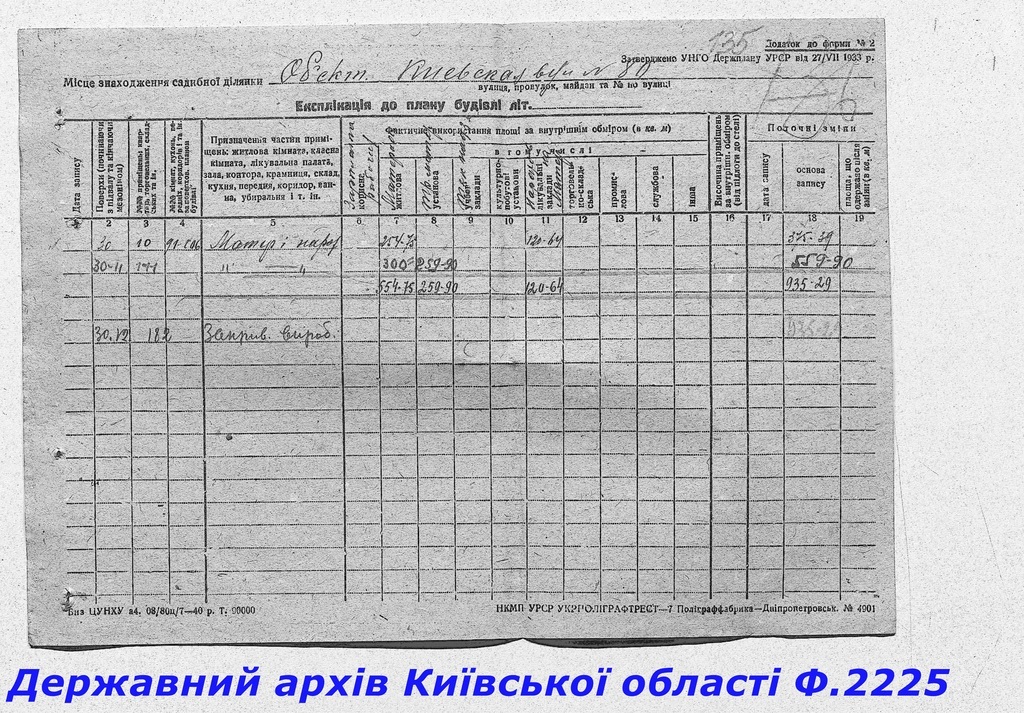 135
Додаток до форми № 2
Затверджено УНГО Держплану УРСР від 27/VII 1933 р.
Місце знаходження садибної ділянки Киевская № 80
вулиця, провулок, майдан та № по вулиці
Експлікація до плану будівлі літ.
Дата запису
Поверхи (починаючи з підвалу та кінчаючи мезоніном)
Призначення частин приміщень: житлова кімната, класна кімната, лікувальна палата, зала, контора, крамниця, склад, кухня, передня, коридор, ванна, убиральня і т. ін.
Фактичне використання площі за внутрішнім обміром (в кв. м)
в тому числі
корисна
житлова
установа
учбові заклади
культурно-побутові установи
лікувальні заклади
торговельно-складська
промислова
службова
інша
Височина приміщень за внутрішн. обміром (від підлоги до стелі)
Поточні зміни
дата запису
основа запису
площа, що одержано після зміни (в кв. м)
2 3 4 5 6 7 8 9 10 11 12 13 14 15 16 17 18 19
30 10 254-75 120-64 375-39
30-11 " — " 300= 259-90 559-90
554-75 259-90 120-64 935-29
30.12 182 935-29
Биз ЦУНХУ а4. 08/80ц/7—40 р. Т. 90000
НКМП УРСР УКРПОЛІГРАФТРЕСТ—7 Поліграффабрика—Дніпропетровськ. № 4901
Державний архів Київської області Ф.2225